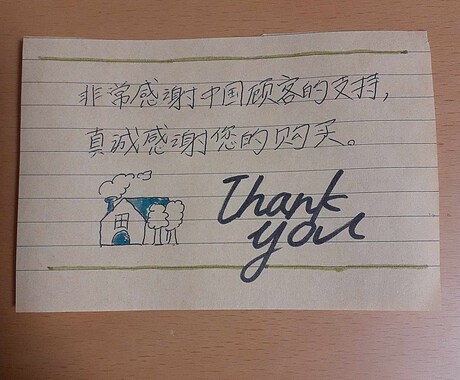 非常感谢中国顾客的支持，
真诚感谢您的购买。
Thank
you